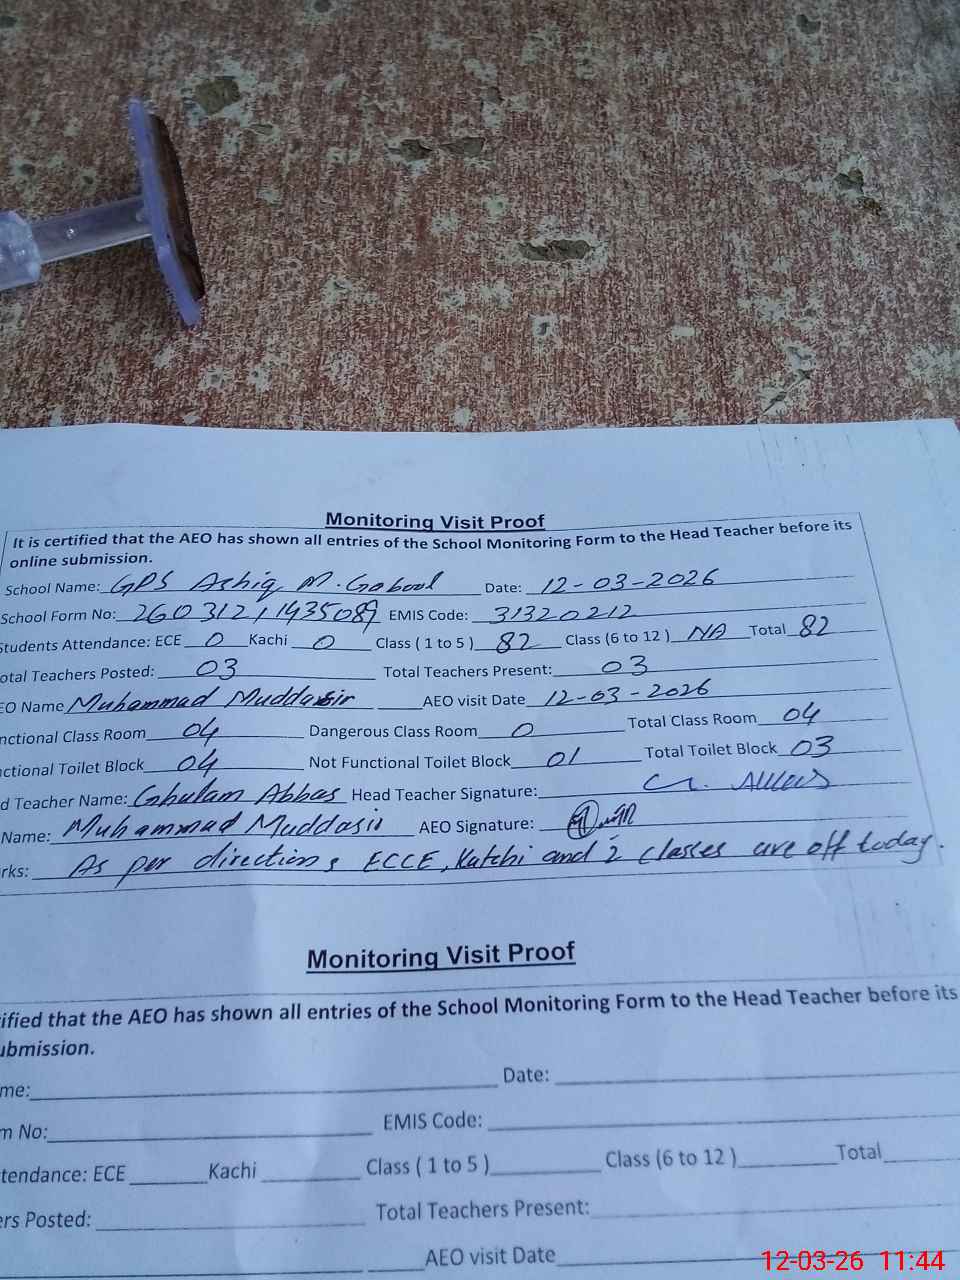 Monitoring Visit Proof
It is certified that the AEO has shown all entries of the School Monitoring Form to the Head Teacher before its
online submission.
School Name: GPS Ashiq M. Gabool Date: 12-03-2026
School Form No: 26031211435089 EMIS Code: 31320212
Students Attendance: ECE 0 Kachi 0 Class ( 1 to 5 ) 82 Class (6 to 12 ) NA Total 82
otal Teachers Posted: 03 Total Teachers Present: 03
EO Name Muhammad Muddassir AEO visit Date 12-03-2026
nctional Class Room 04 Dangerous Class Room 0 Total Class Room 04
ctional Toilet Block 04 Not Functional Toilet Block 01 Total Toilet Block 03
d Teacher Name: Ghulam Abbas Head Teacher Signature:
Name: Muhammad Muddasir AEO Signature:
rks: As per directions ECCE, Katchi and 2 classes are off today.
Monitoring Visit Proof
ified that the AEO has shown all entries of the School Monitoring Form to the Head Teacher before its
ubmission.
me: Date:
m No: EMIS Code:
tendance: ECE Kachi Class ( 1 to 5 ) Class (6 to 12 ) Total
ers Posted: Total Teachers Present:
AEO visit Date
12-03-26 11:44